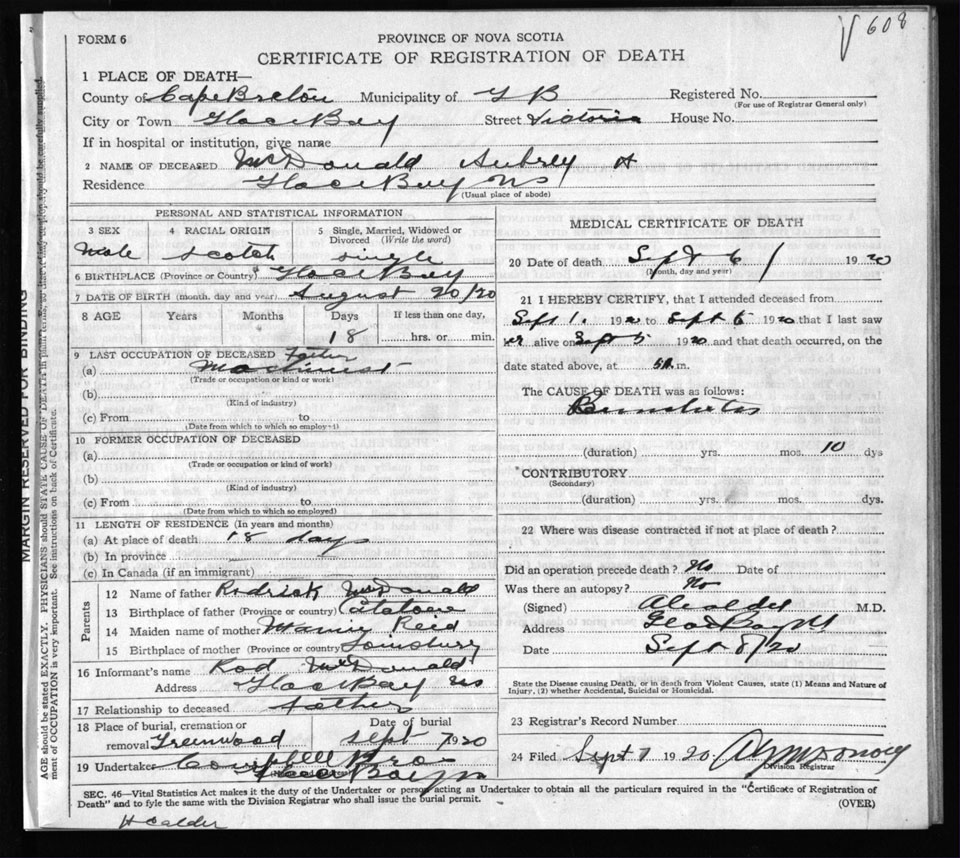 608
FORM 6
PROVINCE OF NOVA SCOTIA
CERTIFICATE OF REGISTRATION OF DEATH
1 PLACE OF DEATH—
County of Cape Breton Municipality of G B Registered No.
(For use of Registrar General only)
City or Town Glace Bay Street Victoria House No.
If in hospital or institution, give name
2 NAME OF DECEASED McDonald Aubrey A
Residence Glace Bay NS
(Usual place of abode)
PERSONAL AND STATISTICAL INFORMATION
3 SEX 4 RACIAL ORIGIN 5 Single, Married, Widowed or Divorced (Write the word)
Male Scotch Single
6 BIRTHPLACE (Province or Country) Glace Bay
7 DATE OF BIRTH (month, day and year) August 20/20
8 AGE Years Months Days If less than one day,
18 hrs. or min.
9 LAST OCCUPATION OF DECEASED Father
(a) Machinist
(Trade or occupation or kind or work)
(b)
(Kind of industry)
(c) From to
(Date from which to which so employed)
10 FORMER OCCUPATION OF DECEASED
(a)
(Trade or occupation or kind of work)
(b)
(Kind of industry)
(c) From to
(Date from which to which so employed)
11 LENGTH OF RESIDENCE (In years and months)
(a) At place of death 18 days
(b) In province
(c) In Canada (if an immigrant)
Parents
12 Name of father Rodrick McDonald
13 Birthplace of father (Province or country) Catalone
14 Maiden name of mother Reid
15 Birthplace of mother (Province or country) Louisburg
16 Informant's name Rod McDonald
Address Glace Bay NS
17 Relationship to deceased father
18 Place of burial, cremation or removal Greenwood Date of burial Sept 7 1920
19 Undertaker Campbell Bro
Glace Bay
MEDICAL CERTIFICATE OF DEATH
20 Date of death Sept 6 1920
(Month, day and year)
21 I HEREBY CERTIFY, that I attended deceased from
Sept 1. 1920 to Sept 6 1920 that I last saw
alive on Sept 5 1920 and that death occurred, on the
date stated above, at m.
The CAUSE OF DEATH was as follows:
Bronchitis
(duration) yrs. mos. 10 dys
CONTRIBUTORY
(Secondary)
(duration) yrs. mos. dys.
22 Where was disease contracted if not at place of death?
Did an operation precede death? No Date of
Was there an autopsy? No
(Signed) M.D.
Address Glace Bay
Date Sept 8/20
State the Disease causing Death, or in death from Violent Causes, state (1) Means and Nature of Injury, (2) whether Accidental, Suicidal or Homicidal.
23 Registrar's Record Number
24 Filed Sept 7 1920
Division Registrar
SEC. 46—Vital Statistics Act makes it the duty of the Undertaker or person acting as Undertaker to obtain all the particulars required in the "Certificate of Registration of
Death" and to fyle the same with the Division Registrar who shall issue the burial permit.
(OVER)
H Calder
MARGIN RESERVED FOR BINDING
AGE should be stated EXACTLY. PHYSICIANS should STATE CAUSE OF DEATH in plain terms,
ment of OCCUPATION is very important. See instructions on back of Certificate.